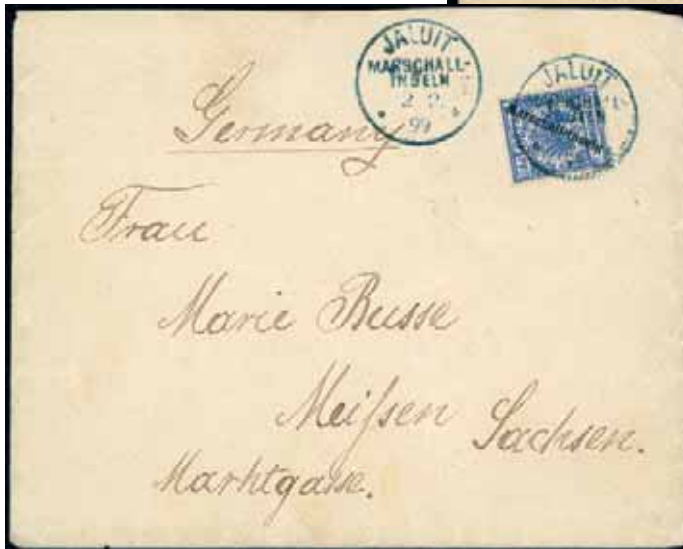 JALUIT
MARSCHALL-
INSELN
2 2
99
JALUIT
Germany
Frau
Marie Busse
Meißen Sachsen.
Marktgasse.